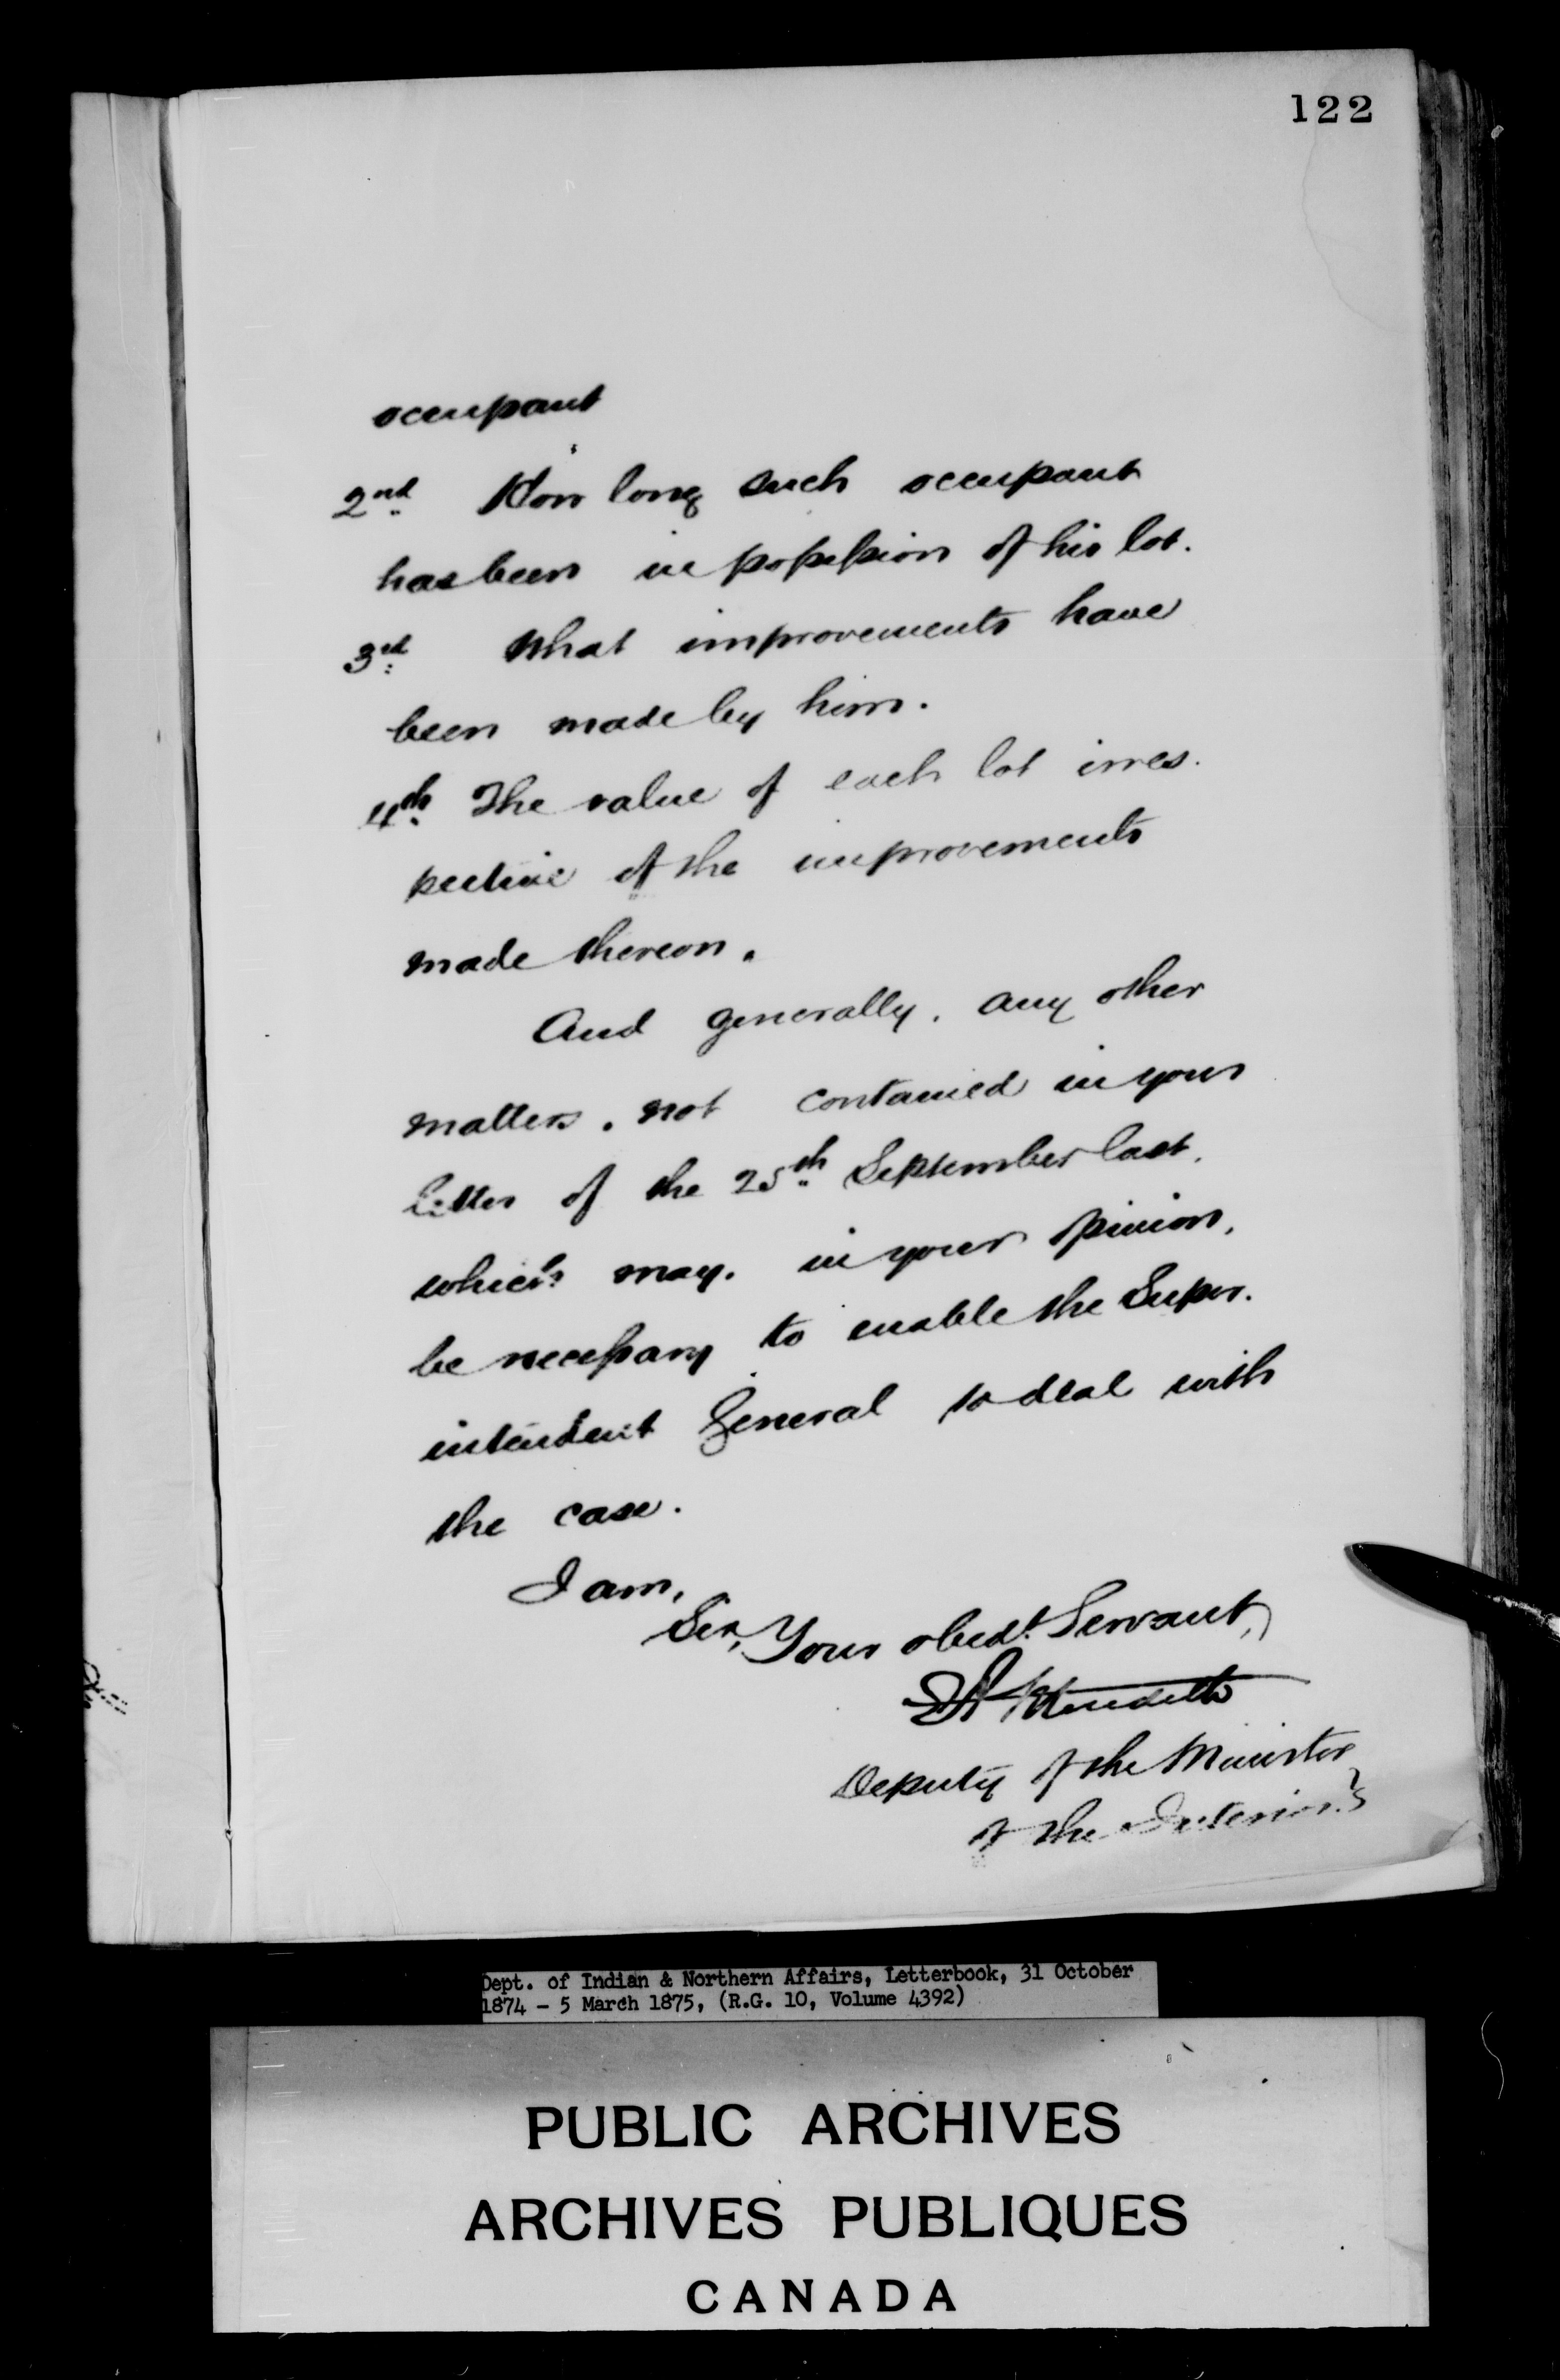 122
occupant
2nd How long such occupant
has been in possession of his lot.
3rd What improvements have
been made by him.
4th The value of each lot irres-
pective of the improvements
made thereon.
And generally, any other
matters, not contained in your
letter of the 25th September last,
which may, in your opinion,
be necessary to enable the Super-
intendent General to deal with
the case.
I am,
Sir, Your obedt. Servant,
E A Meredith
Deputy of the Minister
of the Interior
Dept. of Indian & Northern Affairs, Letterbook, 31 October
1874 - 5 March 1875, (R.G. 10, Volume 4392)
PUBLIC ARCHIVES
ARCHIVES PUBLIQUES
CANADA